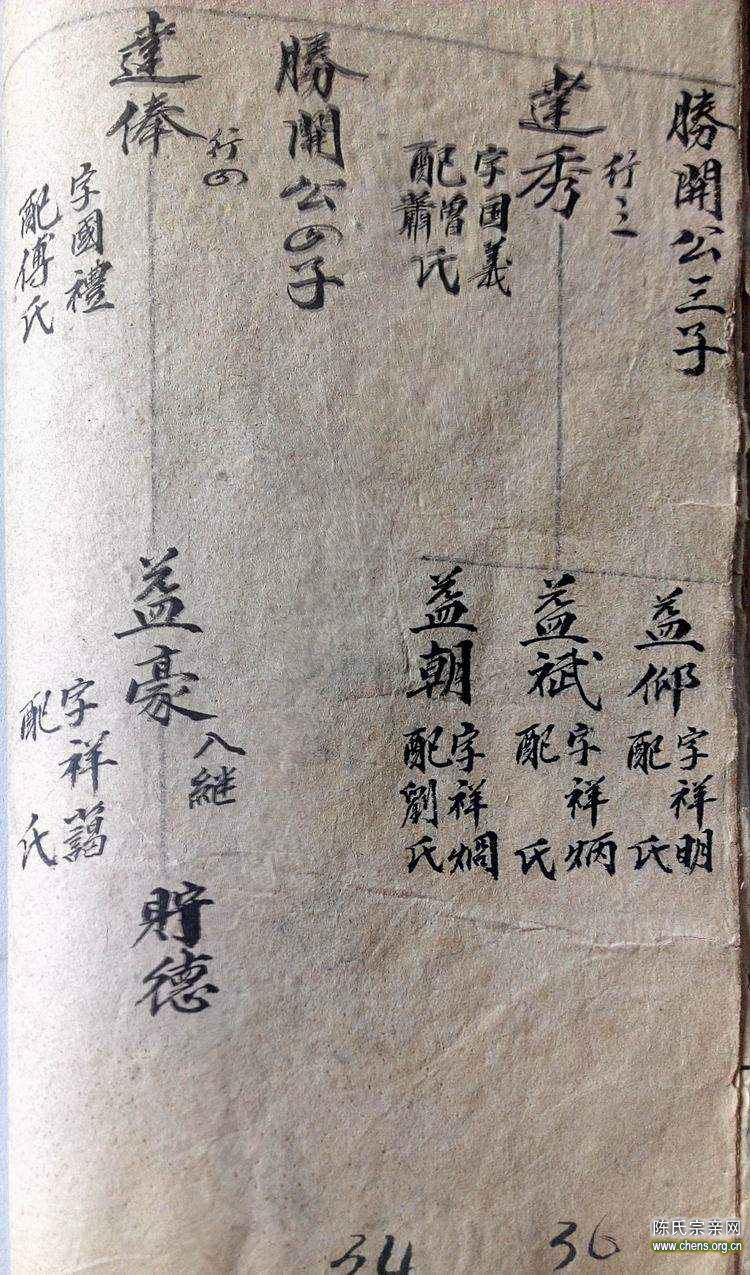 勝開公三子
達秀
行三
字国義
配曾蕭氏
益仰
字祥明
配 氏
益斌
字祥炳
配 氏
益朝
字祥焗
配劉氏
勝開公四子
達俸
行四
字國禮
配傅氏
益豪
入継
字祥藹
配 氏
貯德
34
36
陈氏宗亲网
www.chens.org.cn